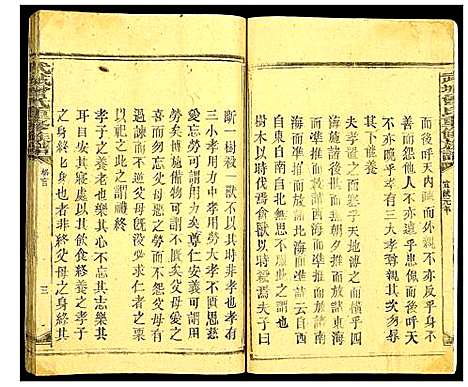 武城曾氏重修族譜
無內疏而外親不亦反乎身不
善而怨他人不亦遠乎患
天不亦晚乎孝有三大孝尊親其次弗辱
其下能養
夫孝置之而塞乎天地溥之而橫乎四
海施諸後世而無朝夕推而放諸東海
而準推而放諸西海而準推而放諸南
海而準推而放諸北海而準詩云自西
自東自南自北無思不服此之謂也
樹木以時伐焉禽獸以時殺焉夫子曰
斷一樹殺一獸不以其時非孝也孝有
三小孝用力中孝用勞大孝不匱思慈
愛忘勞可謂用力矣尊仁安義可謂用
勞矣博施備物可謂不匱矣父母愛之
喜而勿忘父母惡之懼而無怨父母有
過諫而不逆父母既沒必求仁者之粟
以祀之此之謂禮終
孝子之養老也樂其心不違其志樂其
耳目安其寢處以其飲食終養之孝子
之身終終身也者非終父母之身終其
武城曾氏重修族譜
三